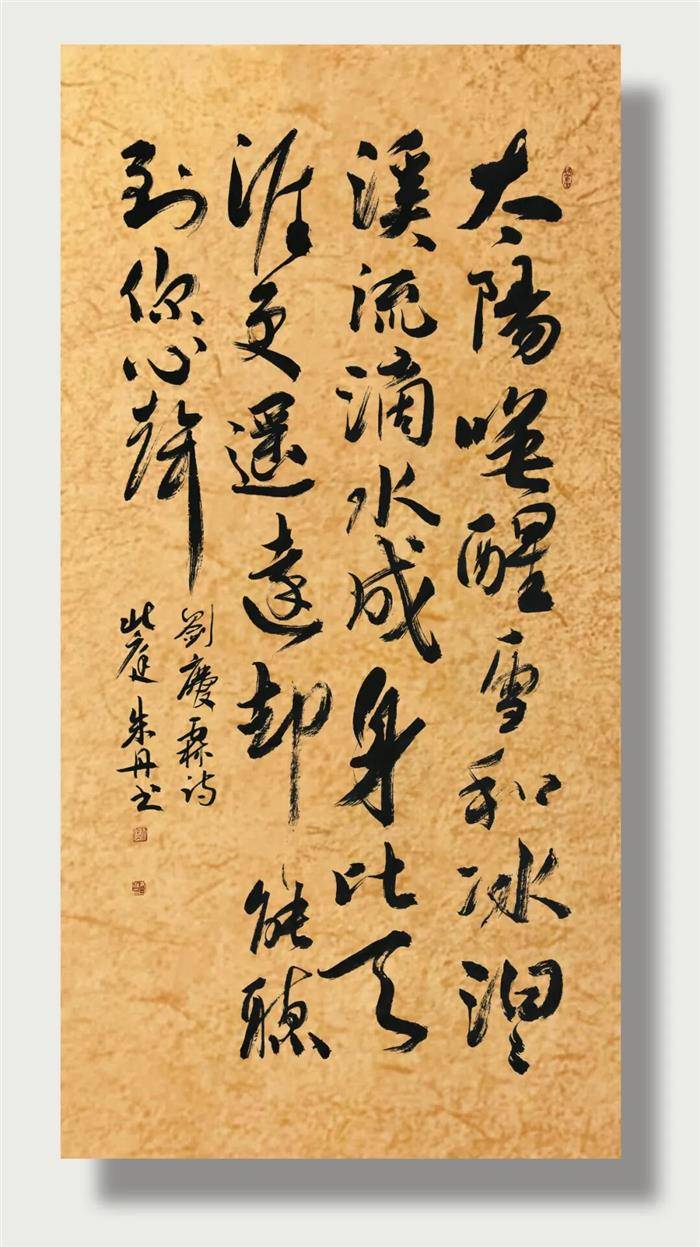 太陽喚醒雪和冰涓々
溪流滴水成身比天
涯更遥遠却能聽
到你心聲
劉慶霖诗
庭朱丹书